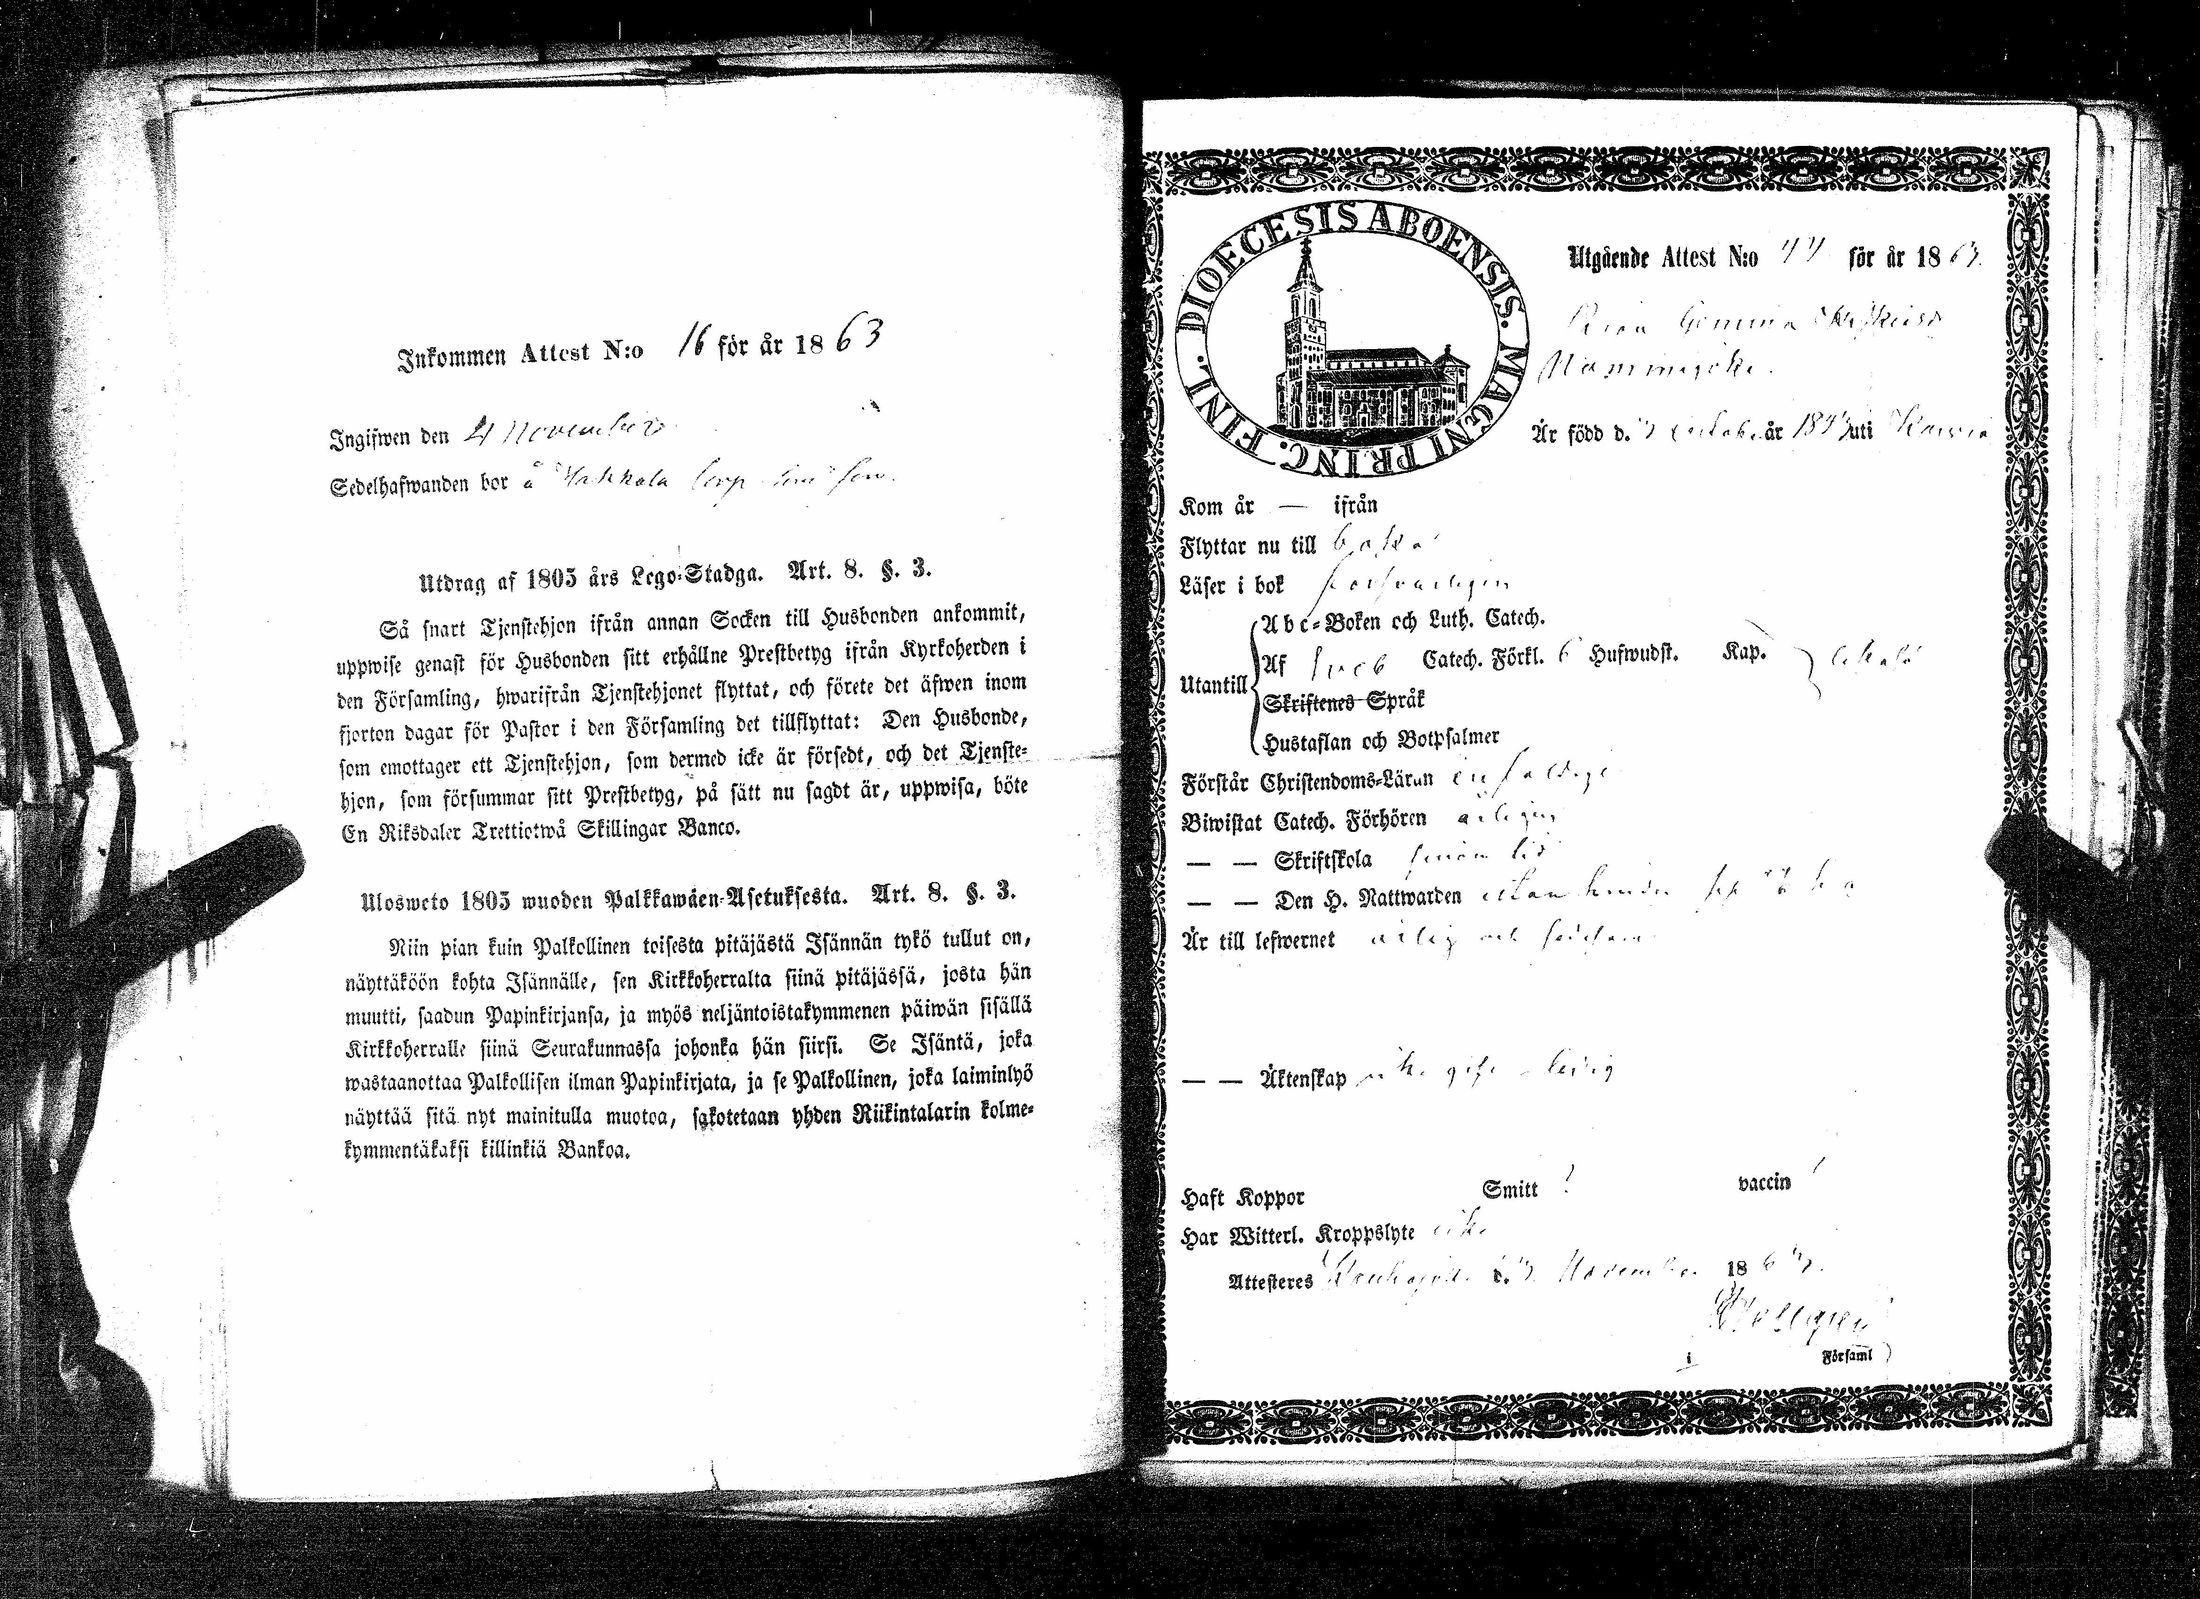 Inkommen Attest N:o 16 för år 1863
Ingifwen den 4 November
Sedelhafwanden bor å
Utdrag af 1805 års Lego-Stadga. Art. 8. §. 3.
Så snart Tjenstehjon ifrån annan Socken till Husbonden ankommit,
uppwise genast för Husbonden sitt erhållne Prestbetyg ifrån Kyrkoherden i
den Församling, hwarifrån Tjenstehjonet flyttat, och förete det äfwen inom
fjorton dagar för Pastor i den Församling det tillflyttat: Den Husbonde,
som emottager ett Tjenstehjon, som dermed icke är försedt, och det Tjenste-
hjon, som försummar sitt Prestbetyg, på sätt nu sagdt är, uppwisa, böte
En Riksdaler Trettiotwå Skillingar Banco.
Ulosweto 1805 wuoden Palkkawäen-Asetuksesta. Art. 8. §. 3.
Niin pian kuin Palkollinen toisesta pitäjästä Isännän tykö tullut on,
näyttäköön kohta Isännälle, sen Kirkkoherralta siinä pitäjässä, josta hän
muutti, saadun Papinkirjansa, ja myös neljäntoistakymmenen päiwän sisällä
Kirkkoherralle siinä Seurakunnassa johonka hän siirsi. Se Isäntä, joka
wastaanottaa Palkollisen ilman Papinkirjata, ja se Palkollinen, joka laiminlyö
näyttää sitä nyt mainitulla muotoa, sakotetaan yhden Riikintalarin kolme-
kymmentäkaksi killinkiä Bankoa.
DIOECESIS ABOENSIS. MAGNI PRINC. FINL.
Utgående Attest N:o 44 för år 1863
Är född d. år uti
Kom år — ifrån
Flyttar nu till
Läser i bok försvarligen
Utantill
Abc-Boken och Luth. Catech.
Af Sveb Catech. Förkl. 6 Hufwudst. Kap.
Skriftenes Språk
Hustaflan och Botpsalmer
Förstår Christendoms-Läran enfaldigt
Biwistat Catech. Förhören årligen
— — Skriftskola sin tid
— — Den H. Nattwarden utan hinder
Är till lefwernet ärlig och
— — Äktenskap icke gift ledig
Haft Koppor Smitt vaccin
Har Witterl. Kroppslyte icke
Attesteres d. 3 November 1863
i Församl